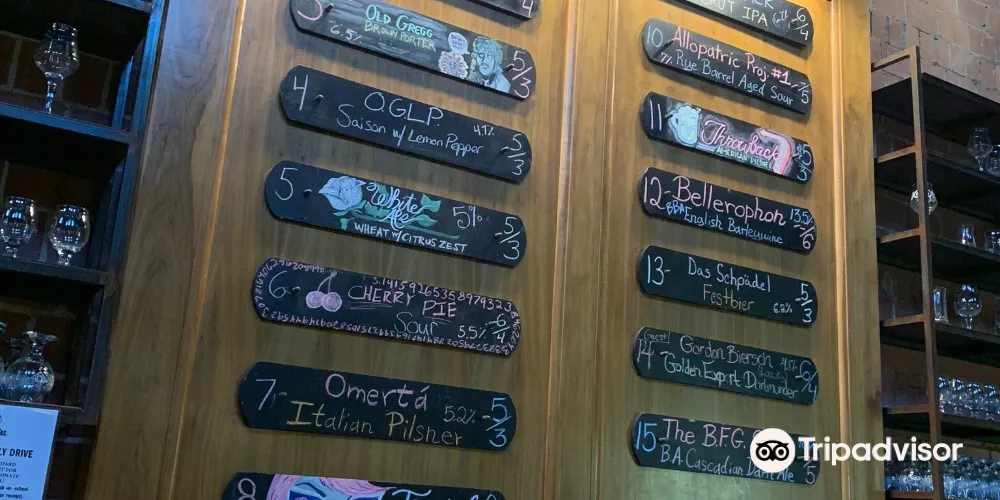 3
OLD GREGG
BROWN PORTER
6.5%
5/3
4
OGLP
4.7%
Saison w/ Lemon Pepper
5/3
5
White
Ale
5%
WHEAT w/ CITRUS ZEST
5/3
6
3.14159265358979323
CHERRY PIE
Sour
5.5%
6/4
7
Omertá
Italian Pilsner
5.2%
5/3
8
BRUT IPA
6/4
10
Allopatric Proj. #1
Rye Barrel Aged Sour
7/5
11
Throwback
AMERICAN PILSNER
5/3
12-
Bellerophon
BBA English Barleywine
13.5%
7/6
13-
Das Schpädel
Festbier
6.2%
5/3
Guest
14
Gordon Biersch
Golden Export Dortmunder
6/4
15
The B.F.G.
B.A. Cascadian Dark Ale
5
LY DRIVE
Tripadvisor